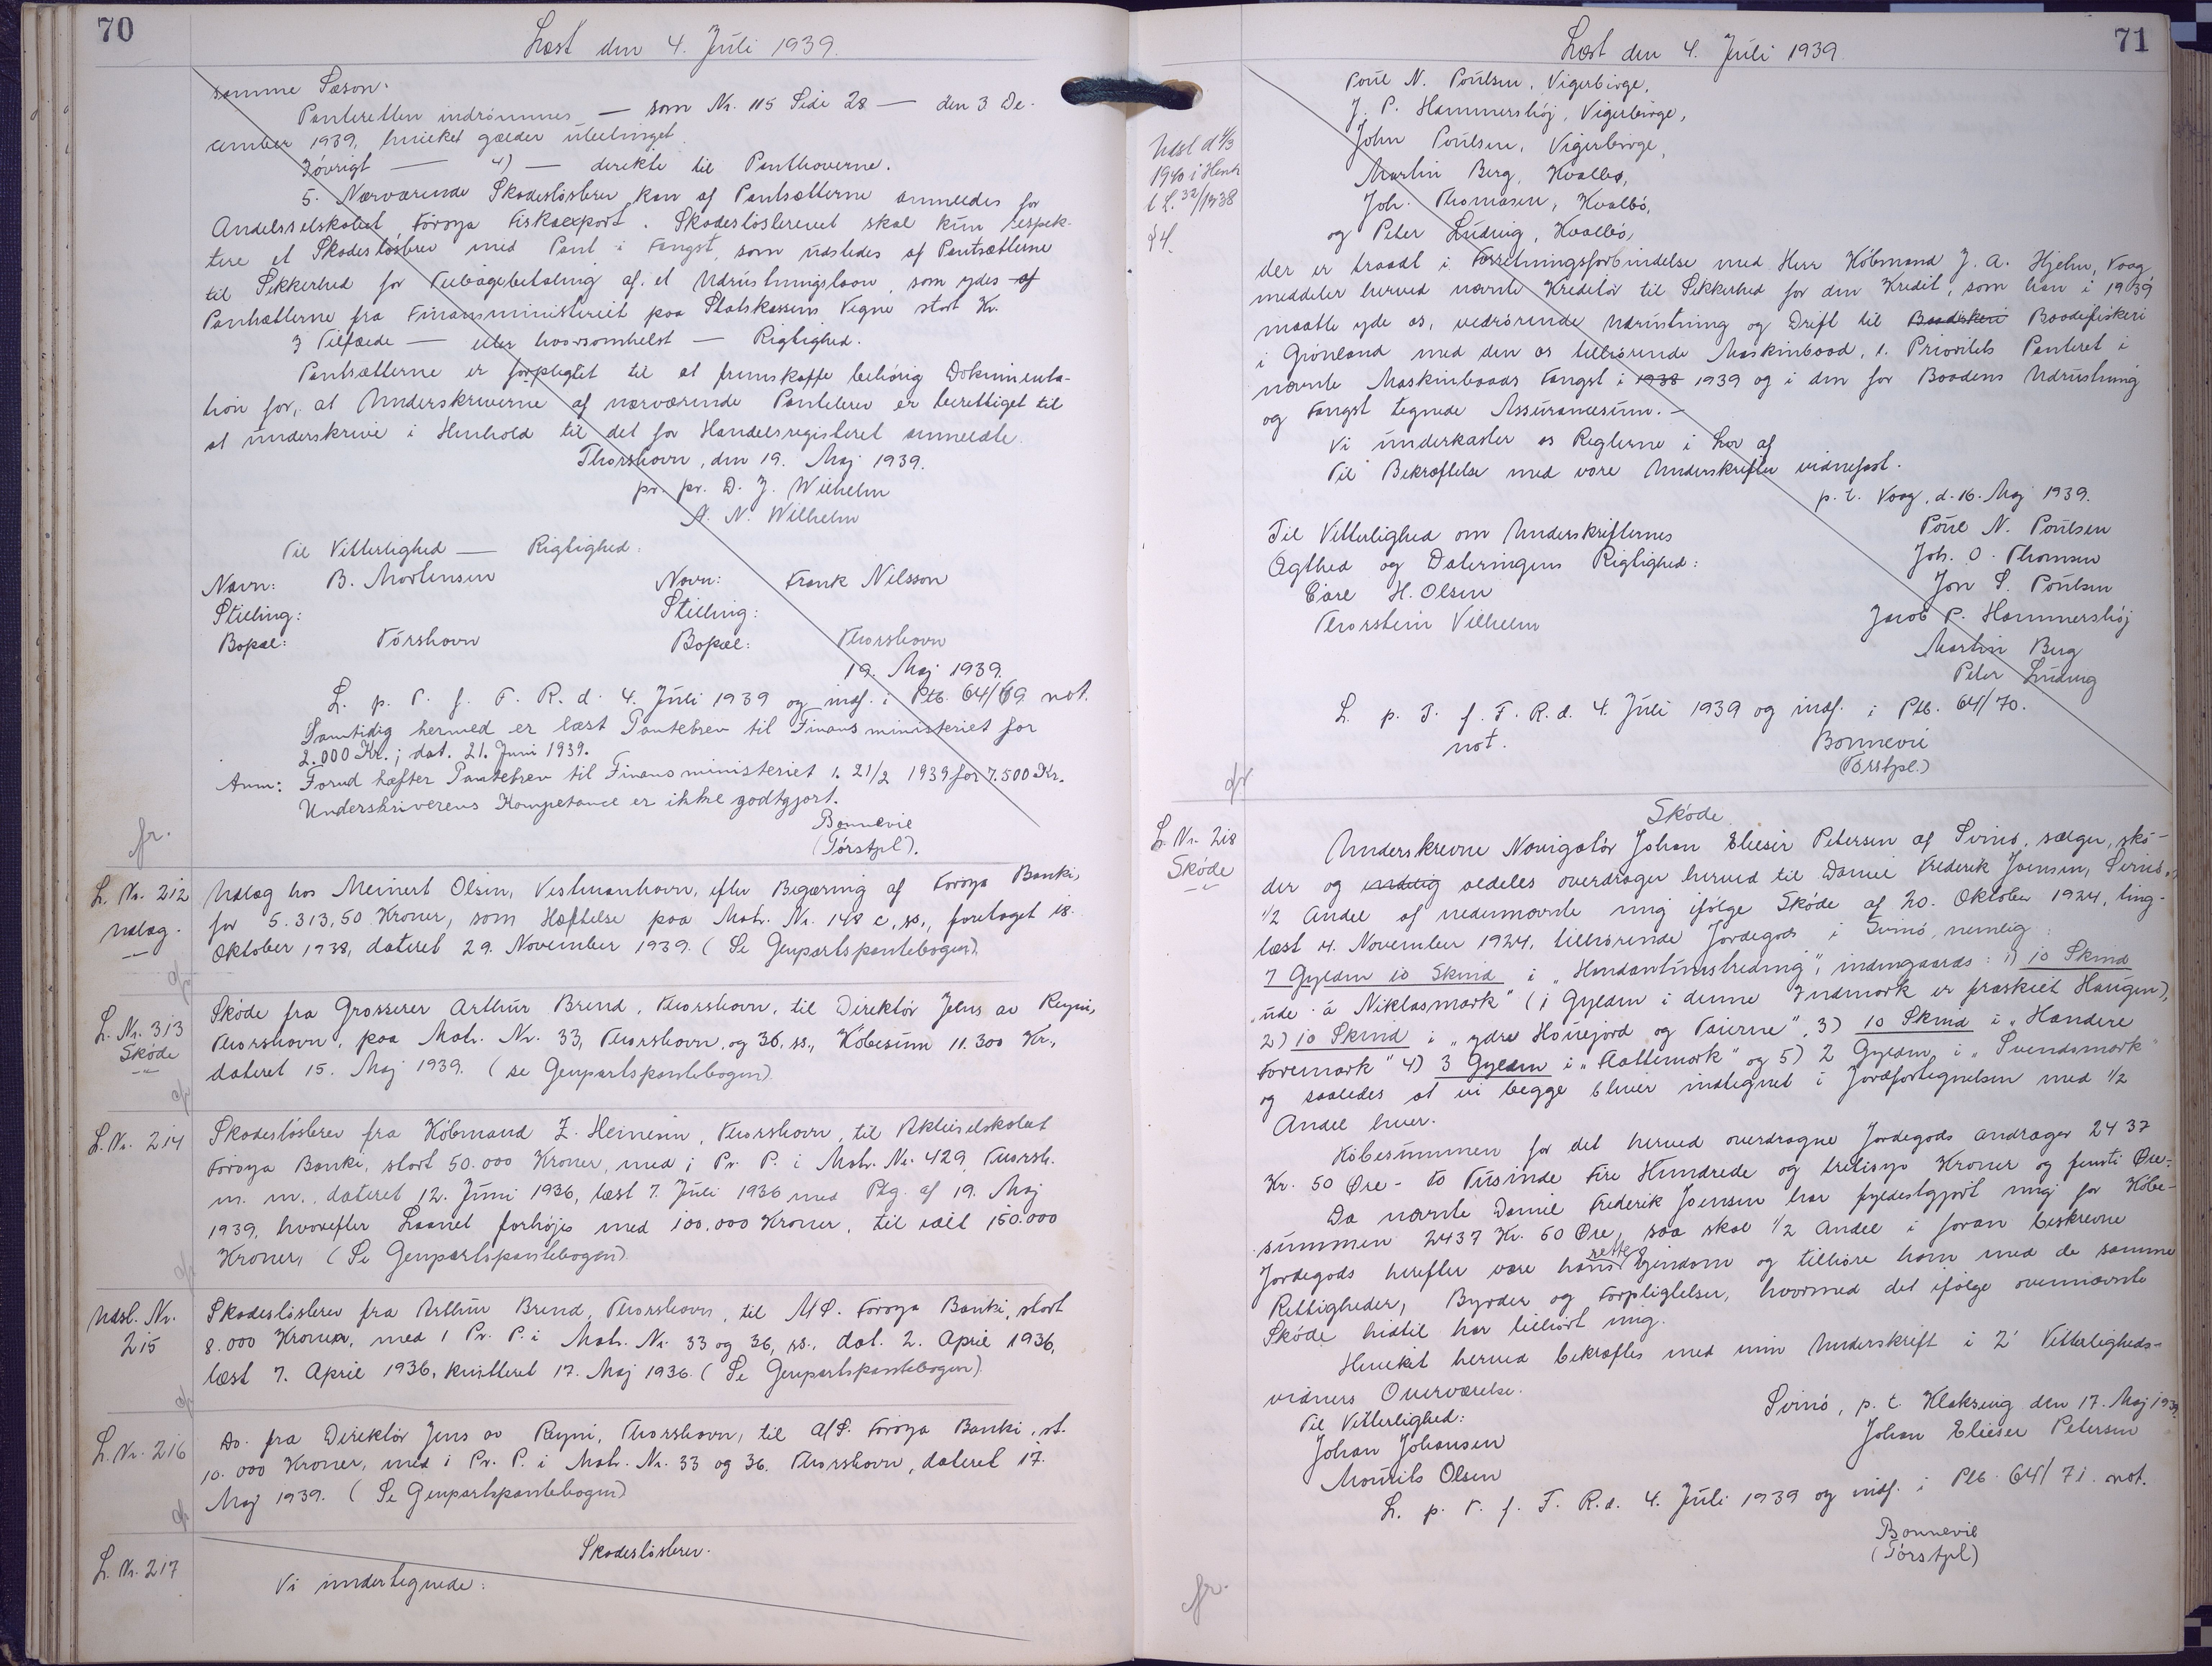 70
Læst den 4. Juli 1939.
samme Sæson.
Panteretten indrömmes — som Nr. 115 Side 28 — den 3 De-
cember 1939, hvilket gælder ubetinget.
Iövrigt — 4) — direkte til Panthaverne.
5. Nærværende Skadeslösbrev kan af Pantsætterne anmeldes for
Andelsselskabet Föroya Fiskaexport. Skadeslösbrevet skal kun respek-
tere et Skadeslösbrev med Pant i Fangst, som udstedes af Pantsætterne
til Sikkerhed for Tilbagebetaling af et Udrustningslaan, som ydes af
Pantsætterne fra Finansministeriet paa Statskassens Vegne stort Kr.
I Tilfælde — eller hvorsomhelst — Rigtighed.
Pantsætterne er forpligtet til at fremskaffe behörig Dokumenta-
tion for, at Underskriverne af nærværende Pantebrev er berettiget til
at underskrive i Henhold til det for Handelsregisteret anmeldte.
Thorshavn, den 19. Maj 1939.
pr. pr. D. J. Wilhelm
A. N. Wilhelm
Til Vitterlighed — Rigtighed:
Navn: B. Mortensen Navn: Frank Nilsson
Stilling: Stilling:
Bopæl: Tórshavn Bopæl: Thorshavn
19. Maj 1939.
L. p. T. f. F. R. d. 4. Juli 1939 og indf. i Ptb. 64/69 not.
Samtidig hermed er læst Pantebrev til Finansministeriet for
2.000 Kr.; dat. 21. Juni 1939.
Anm: Forud hæfter Pantebrev til Finansministeriet l. 21/2 1939 for 7.500 Kr.
Underskriverens Kompetance er ikke godtgjort.
Bonnevie
(Torstpl).
fr.
L. Nr. 212
Udlæg.
Udlæg hos Meinert Olsen, Vestmanhavn, efter Begæring af Foroya Banki,
for 5.313,50 Kroner, som Hæftelse paa Matr. Nr. 148 c, ss., foretaget 18.
Oktober 1938, dateret 29. November 1939. (Se Genpartspantebogen).
L. Nr. 313
Skóde
Skóde fra Grosserer Arthur Brend, Thorshavn, til Direktör Jens av Reyni,
Thorshavn, paa Matr. Nr. 33, Thorshavn, og 36, ss., Köbesum 11.300 Kr.,
dateret 15. Maj 1939. (se Genpartspantebogen).
L. Nr. 214
Skadeslösbrev fra Köbmand Z. Heinesen, Thorshavn, til Aktieselskabet
Foroya Banki, stort 50.000 Kroner, med 1 Pr. P. i Matr. Nr. 429, Thorsh.
m. m., dateret 12. Juni 1936, læst 7. Juli 1936 med Ptg. af 19. Maj
1939, hvorefter Laanet forhöjes med 100.000 Kroner, til ialt 150.000
Kroner, (Se Genpartspantebogen).
Udsl. Nr.
215
Skadeslösbrev fra Arthur Brend, Thorshavn, til A/S. Foroya Banki, stort
8.000 Kroner, med 1 Pr. P. i Matr. Nr. 33 og 36, ss., dat. 2. April 1936,
læst 7. April 1936, kvitteret 17. Maj 1936. (Se Genpartspantebogen).
L. Nr. 216
Do. fra Direktör Jens av Reyni, Thorshavn, til A/S. Foroya Banki, st.
10.000 Kroner, med 1 Pr. P. i Matr. Nr. 33 og 36, Thorshavn, dateret 17.
Maj 1939. (Se Genpartspantebogen)
L. Nr. 217
Skadeslösbrev.
Vi undertegnede:
71
Læst den 4. Juli 1939
Udsl d 4/3
1940 i Henh
t L. 32/1938
§ 4.
Poul N. Poulsen, Vigerbirge,
J. P. Hammershöj, Vigerbirge,
John Poulsen, Vigerbirge,
Martin Berg, Kvalbö,
Joh. Thomasen, Kvalbö,
og Peter Ludvig, Kvalbö,
der er traadt i Forretningsforbindelse med Herr Köbmand J. A. Hjelm, Vaag,
meddeler herved nævnte Kreditör til Sikkerhed for den Kredit, som han i 1939
maatte yde os, vedrörende Udrustning og Drift til Baadskeri Baadefiskeri
i Grönland med den os tilhörende Maskinbaad, 1. Prioritets Panteret i
nævnte Maskinbaads Fangst i 1938 1939 og i den for Baadens Udrustning
og Fangst tegnede Assurancesum. -
Vi underkaster os Reglerne i Lov af
Til Bekræftelse med vore Underskrifter vidnefast.
p. t. Vaag, d. 16. Maj 1939.
Til Vitterlighed om Underskrifternes Poul N. Poulsen
Ægthed og Dateringens Rigtighed: Joh. O. Thomsen
Carl H. Olsen Jon S. Poulsen
Thorstein Vilhelm Jacob P. Hammershöj
Martin Berg
Peter Ludvig
L. p. T. f. F. R. d. 4. Juli 1939 og indf. i Ptb. 64/70.
not. Bonnevie
(Torstpl.)
L. Nr. 218
Skóde
Skóde
Underskrevne Navigatör Johan Elieser Petersen af Svinö, sælger, skö-
der og endelig aldeles overdrager herved til Daniel Frederik Joensen, Svinö,
1/2 Andel af nedennævnte mig ifölge Skóde af 20. Oktober 1924, ting-
læst 4. November 1924, tilhörende Jordegods i Svinö, nemlig:
7 Gylden 10 Skind i "Handantúnsbreding", indengaards: 1) 10 Skind
"ude á Niklasmark" (1 Gylden i denne Indmark er fraskilt Haugen),
2) 10 Skind i "ydre Hauejord og Taierne", 3) 10 Skind i "Handere
Foremark" 4) 3 Gylden i "Aattemark" og 5) 2 Gylden i "Svendsmark"
og saaledes at vi begge bliver indtegnet i Jordfortegnelsen med 1/2
Andel hver.
Köbesummen for det herved overdragne Jordegods andrager 2437
Kr. 50 Øre - to Tusinde Fire Hundrede og tretisyv Kroner og femti Øre-.
Da nævnte Daniel Frederik Joensen har fyldestgjort mig for Köbe-
summen 2437 Kr. 50 Øre, saa skal 1/2 Andel i foran beskrevne
Jordegods herefter være hans rette Ejendom og tilhöre ham med de samme
Rettigheder, Byrder og Forpligtelser, hvormed det ifölge ovennævnte
Skóde hidtil har tilhört mig.
Hvilket herved bekræftes med min Underskrift i 2 Vitterligheds-
vidners Overværelse.
Svinö, p. t. Klaksvig den 17. Maj 1939.
Til Vitterlighed: Johan Elieser Petersen
Johan Johansen
Mourits Olsen
L. p. T. f. F. R. d. 4. Juli 1939 og indf. i Ptb. 64/71. not.
Bonnevie
(Torstpl)
fr.